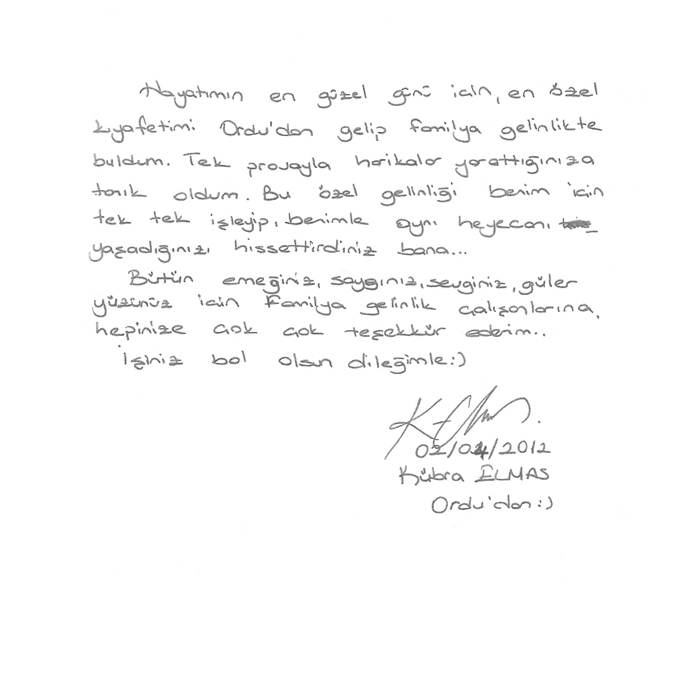 Hayatımın en güzel günü için, en özel
kıyafetimi Ordu'dan gelip Familya gelinlikte
buldum. Tek provayla harikalar yarattığınıza
tanık oldum. Bu özel gelinliği benim için
tek tek işleyip, benimle aynı heyecanı
yaşadığınızı hissettirdiniz bana...
Bütün emeğiniz, saygınız, sevginiz, güler
yüzünüz için Familya gelinlik çalışanlarına,
hepinize çok çok teşekkür ederim..
İşiniz bol olsun dileğimle:)
02/04/2012
Kübra ELMAS
Ordu'dan:)